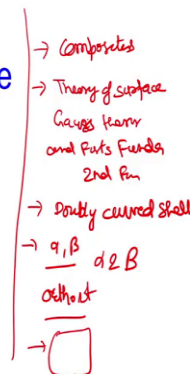 e
→ Composites
→ Theory of surface
Gauss
and Funda
2nd Fun
→ Doubly curved Shell
→ α, β α2 β
orthort
→